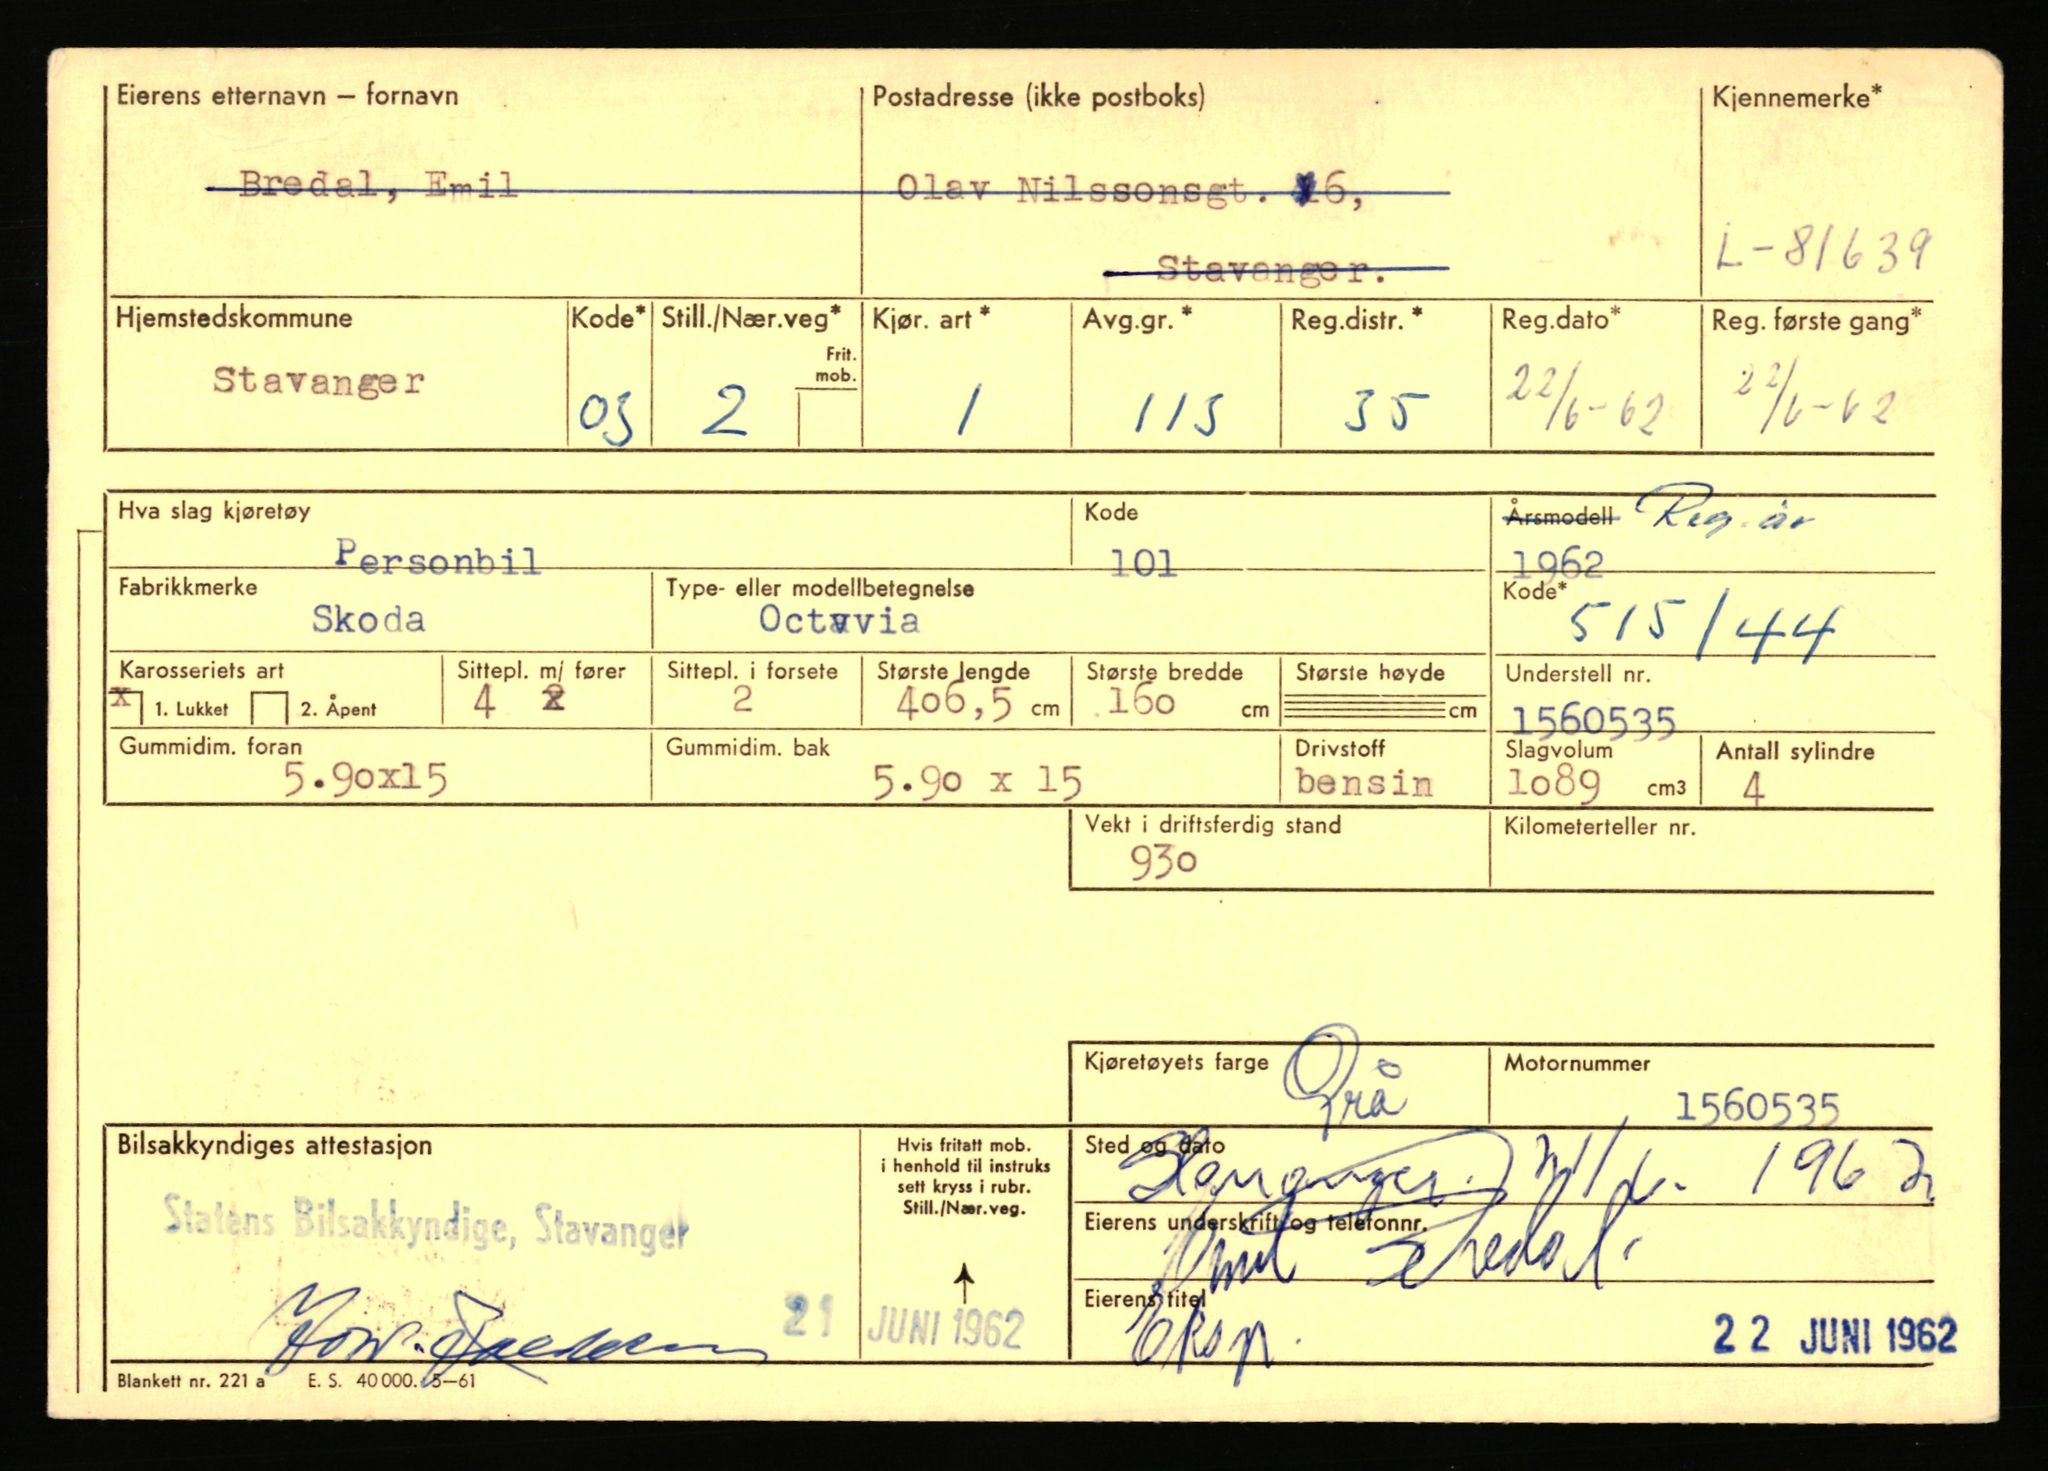 Eierens etternavn – fornavn
Postadresse (ikke postboks)
Kjennemerke*
Bredal, Emil
Olav Nilssonsgt. 16,
Stavanger.
L-81639
Hjemstedskommune
Kode*
Still./Nær.veg*
Frit. mob.
Kjør. art*
Avg.gr.*
Reg.distr.*
Reg.dato*
Reg. første gang*
Stavanger
03
2
1
113
35
22/6-62
22/6-62
Hva slag kjøretøy
Kode
Årsmodell Reg. år
Personbil
101
1962
Fabrikkmerke
Type- eller modellbetegnelse
Kode*
Skoda
Octavia
515/44
Karosseriets art
Sittepl. m/ fører
Sittepl. i forsete
Største lengde
Største bredde
Største høyde
Understell nr.
x 1. Lukket 2. Åpent
4
2
406,5 cm
160 cm
cm
1560535
Gummidim. foran
Gummidim. bak
Drivstoff
Slagvolum
Antall sylindre
5.90x15
5.90 x 15
bensin
1089 cm3
4
Vekt i driftsferdig stand
Kilometerteller nr.
930
Kjøretøyets farge
Grå
Motornummer
1560535
Bilsakkyndiges attestasjon
Hvis fritatt mob.
i henhold til instruks
sett kryss i rubr.
Still./Nær.veg.
Sted og dato
Stavanger. 1962
Statens Bilsakkyndige, Stavanger
Eierens underskrift og telefonnr.
Emil Bredal.
21 JUNI 1962
Eierens titel
Eksp.
22 JUNI 1962
Blankett nr. 221 a E. S. 40 000. 5–61